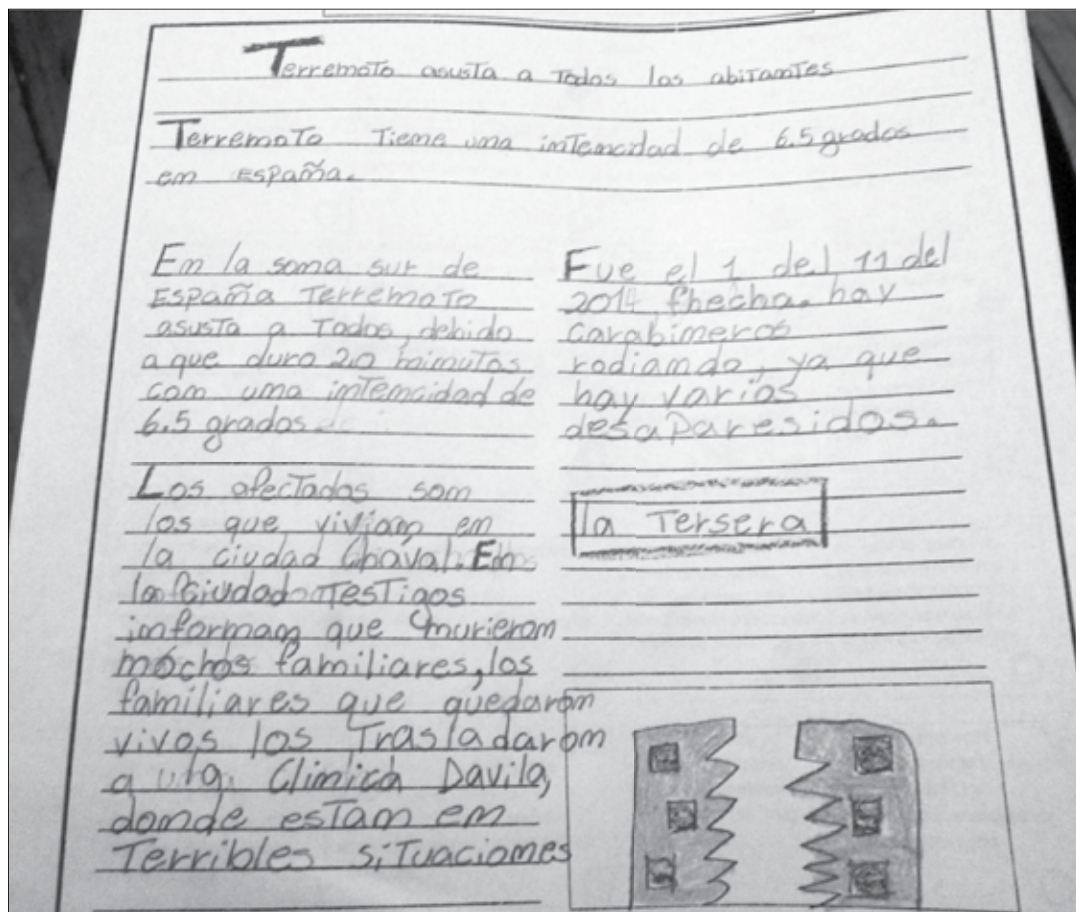 Terremoto asusta a todos los abitantes
Terremoto tiene una intencidad de 6.5 grados
en España.
En la sona sur de
España terremoto
asusta a todos, debido
a que duro 20 minutos
con una intencidad de
6.5 grados
Los afectados son
los que vivian en
la ciudad Chaval. En
la ciudad testigos
informan que murieron
muchos familiares, los
familiares que quedaron
vivos los trasladaron
a una Clinica Davila,
donde estan en
terribles situaciones
Fue el 1 del 11 del
2014 fhecha. hay
carabineros
rodiando, ya que
hay varios
desaparesidos.
la Tersera